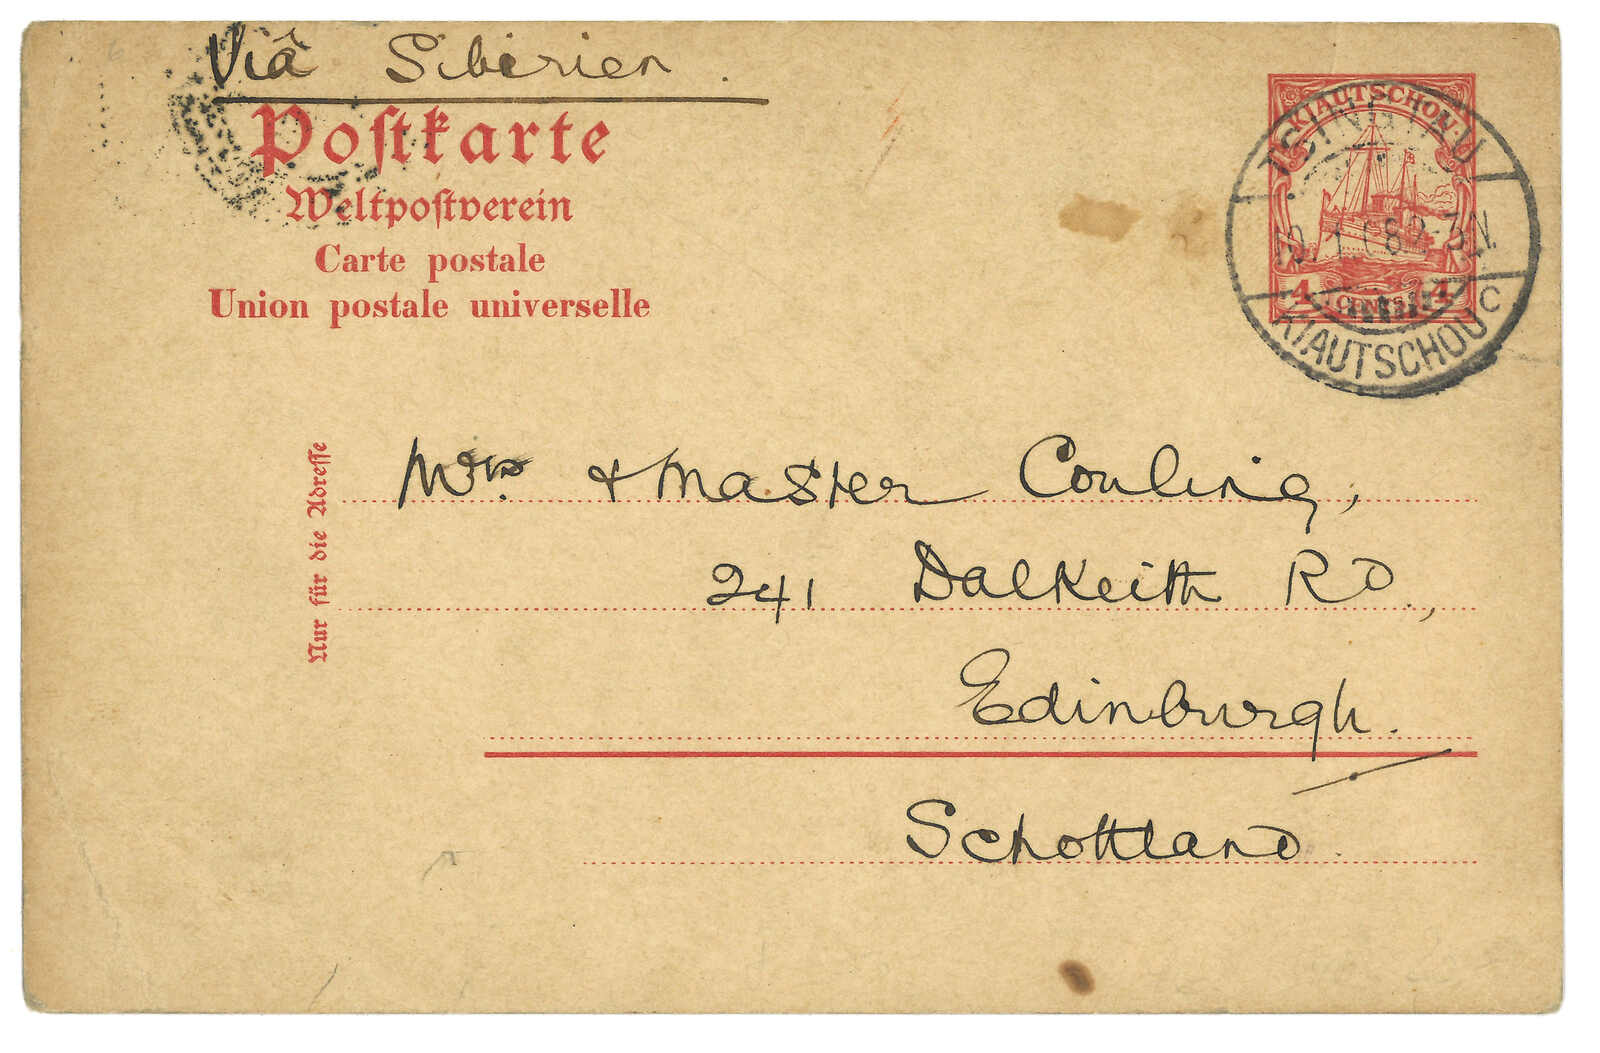 Viâ Siberien.
Postkarte
Weltpostverein
Carte postale
Union postale universelle
KIAUTSCHOU
4 CENTS 4
TSINGTAU
KIAUTSCHOU C
Nur für die Adresse
Mrs. & Master Couling,
241 Dalkeith Rd.,
Edinburgh.
Schottland.